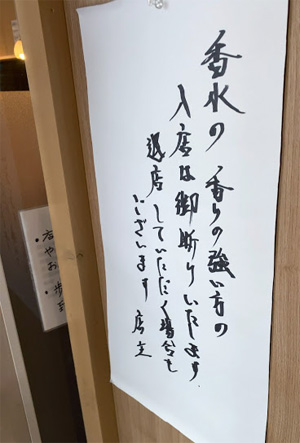 香水の香りの強い方の
入店は御断りいたします
退店していただく場合も
ございます 店主